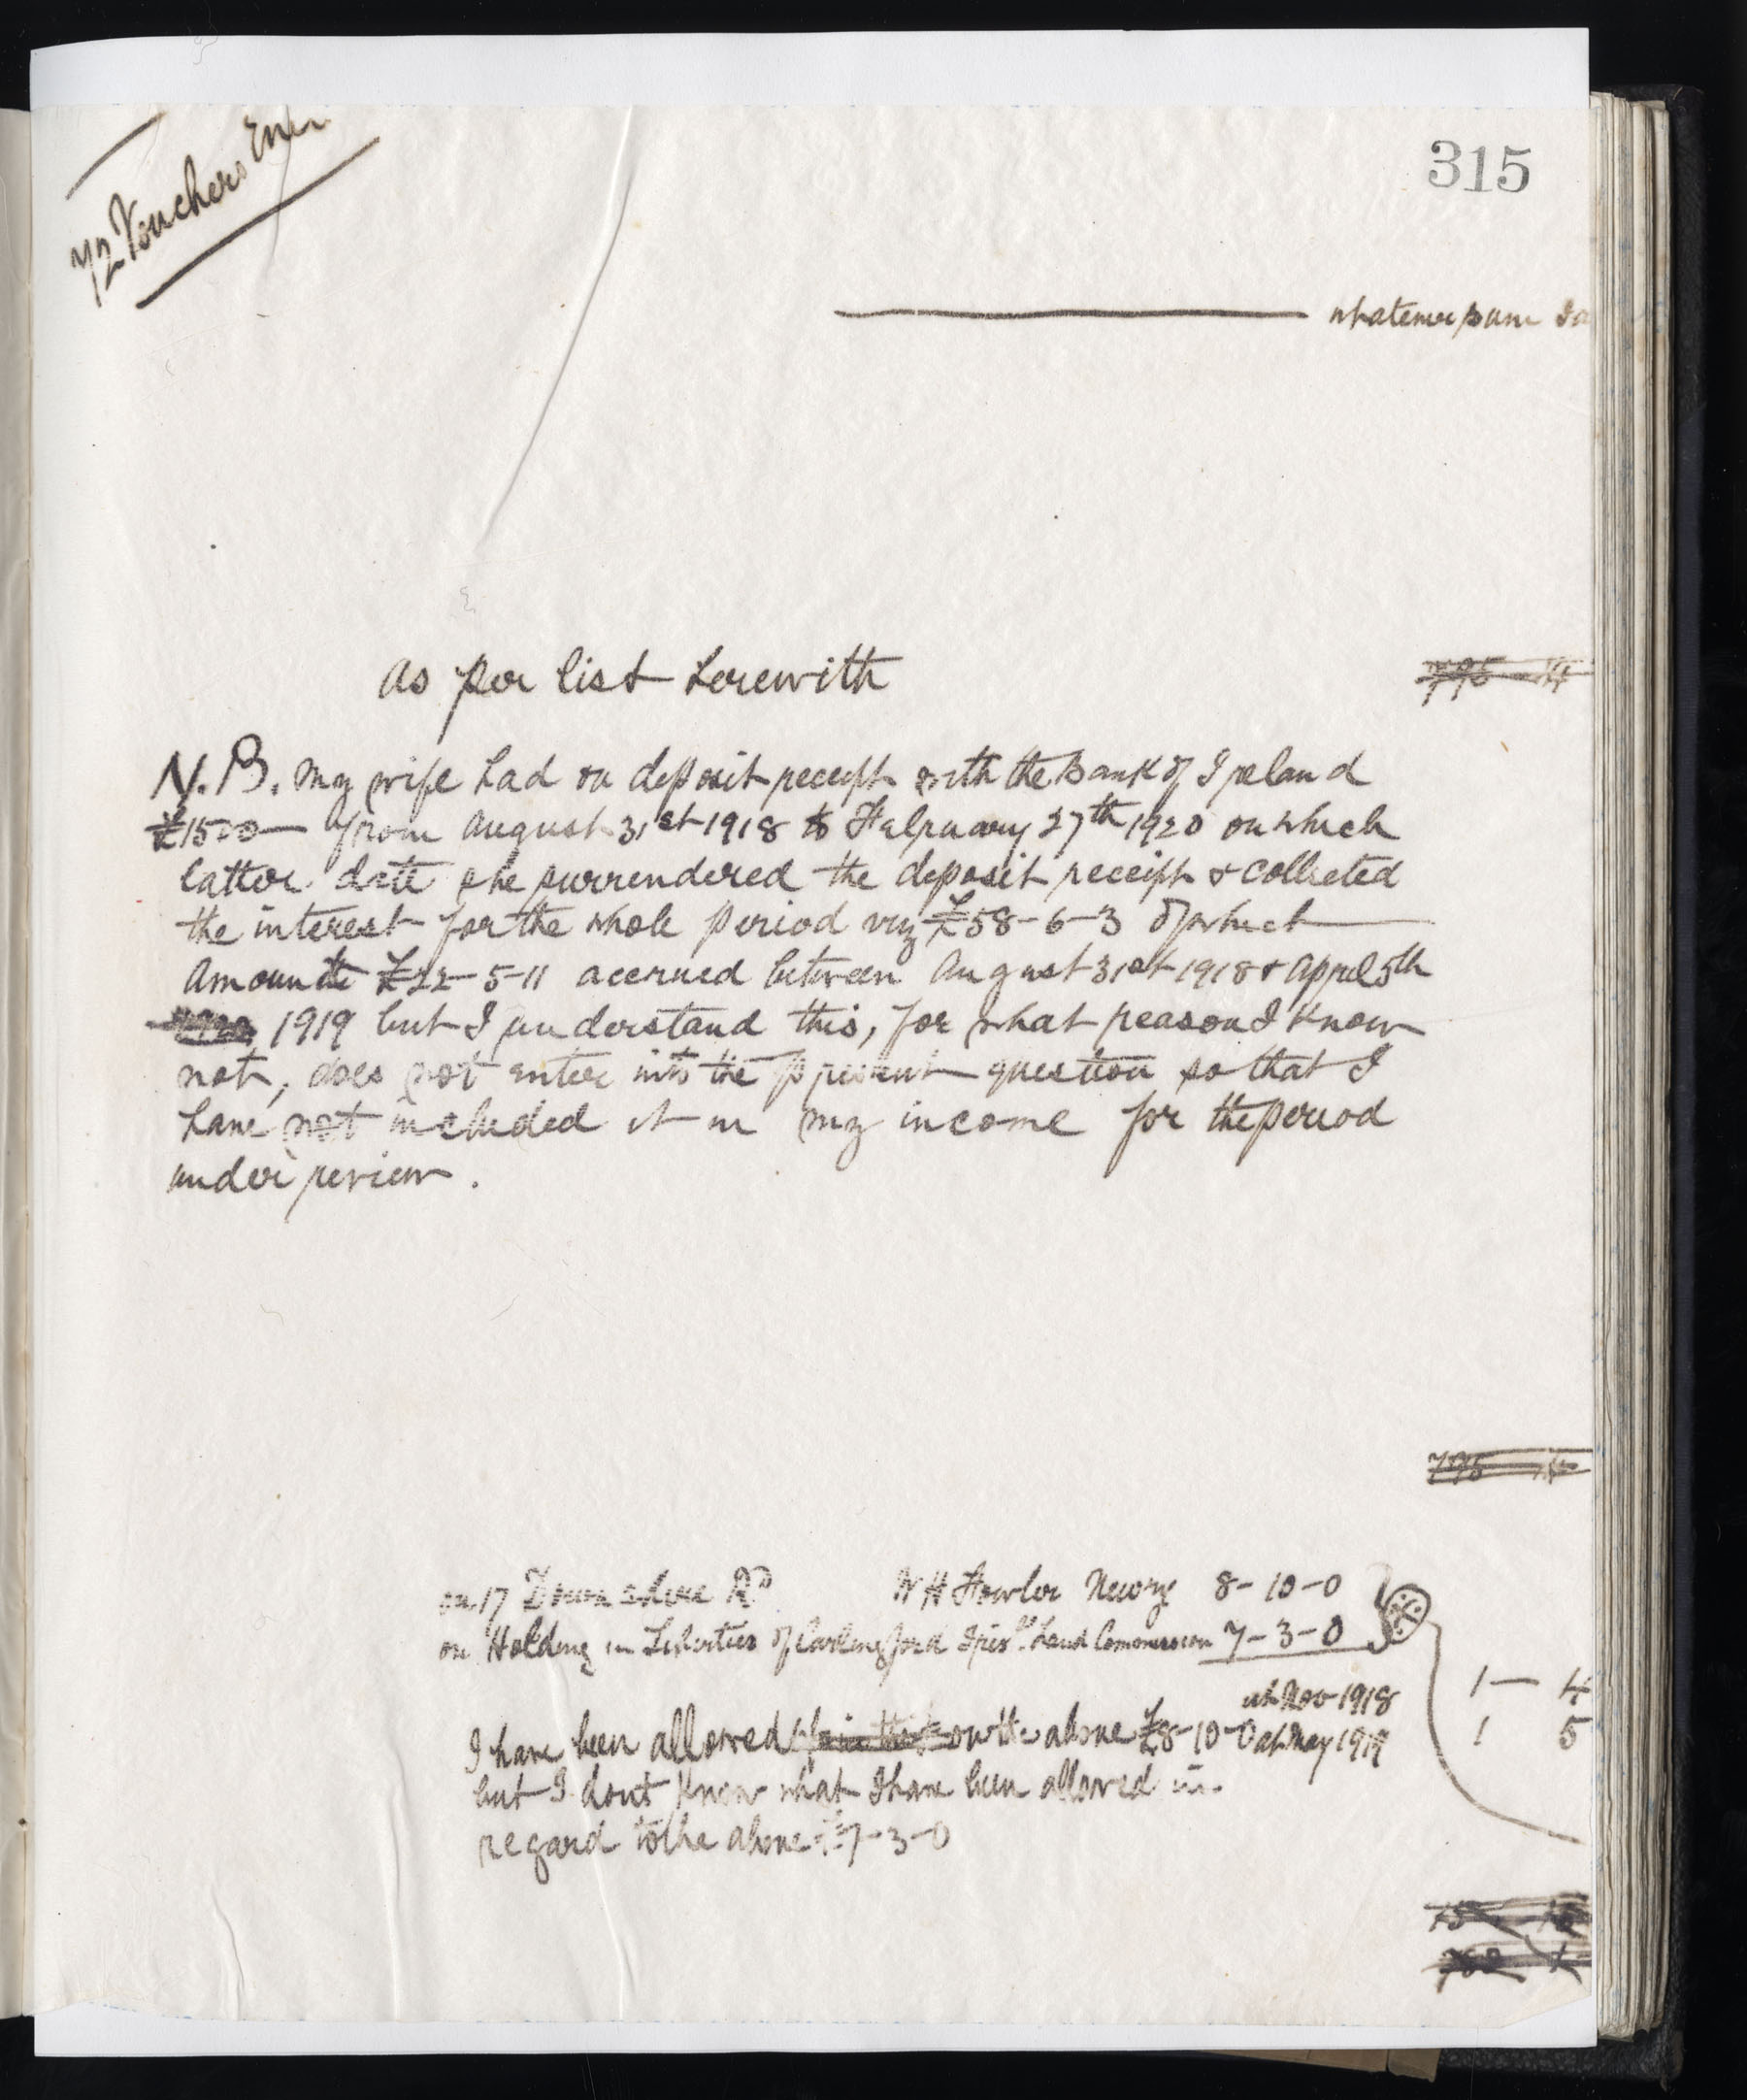 315
72 Vouchers
whatever sum
As per list herewith
N.B. My wife had on deposit receipt with the Bank of Ireland
£1500 — from August 31st 1918 to February 27th 1920 on which
latter date she surrendered the deposit receipt & collected
the interest for the whole period viz £58-6-3 of which
Amount £22-5-11 accrued between August 31st 1918 & April 5th
1919 but I understand this, for what reason I know
not, does not enter into the present question so that I
have not included it in my income for the period
under review.
on 17 Downshire Rd W H Fowler Newry 8-10-0
on Holding in Liberties of Carlingford Irish Land Commission 7-3-0
1 — 4
Nov 1918
I have been allowed on the above £8-10-0 at May 1919
1 5
but I dont know what I have been allowed in
regard to the above £7-3-0